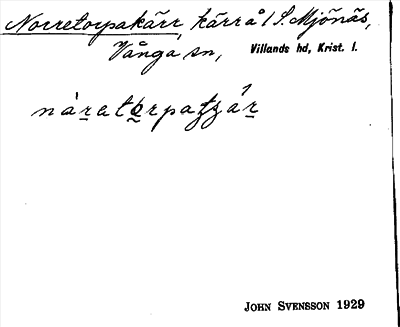 Norretorpakärr, kärr å l S. Mjönäs,
Vånga sn, Villands hd, Krist. l.
JOHN SVENSSON 1929